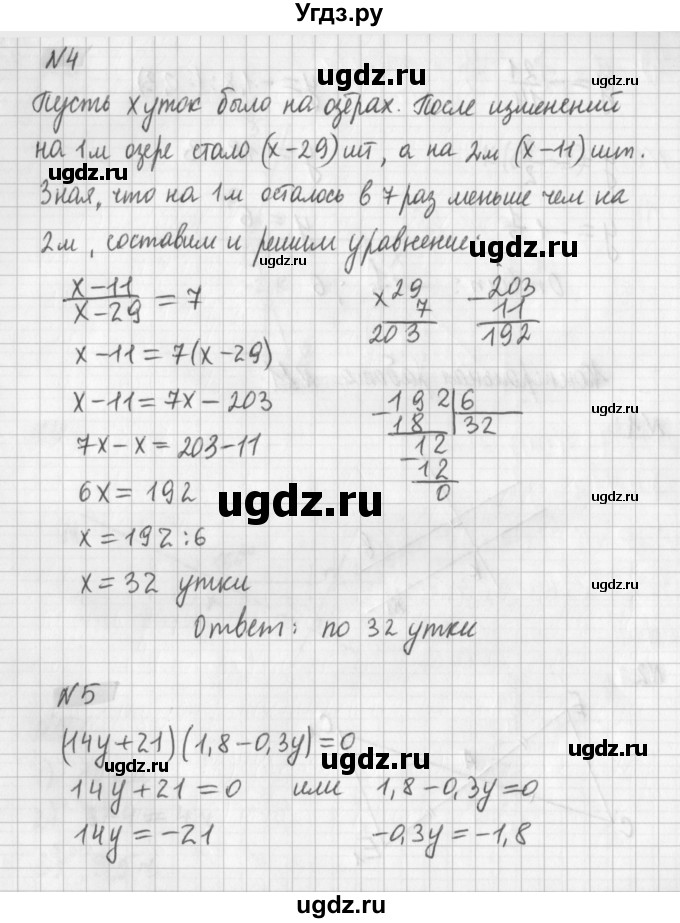 Угдз.ру
№4
Пусть х уток было на озёрах. После изменений
на 1м озере стало (х-29) шт, а на 2м (х-11) шт.
Зная, что на 1м осталось в 7 раз меньше чем на
2м, составим и решим уравнение:
х-11/х-29 = 7
х-11=7(х-29)
х-11=7х-203
7х-х=203-11
6х=192
х=192:6
х=32 утки
×29
7
203
-203
11
192
-192|6
18 |32
-12
12
0
Ответ: по 32 утки
№5
(14y+21)(1,8-0,3y)=0
14y+21=0 или 1,8-0,3y=0
14y=-21 -0,3y=-1,8
ugdz.ru
ugdz.ru
ugdz.ru
ugdz.ru
ugdz.ru
ugdz.ru
ugdz.ru
ugdz.ru
ugdz.ru
ugdz.ru
ugdz.ru
ugdz.ru
ugdz.ru
ugdz.ru